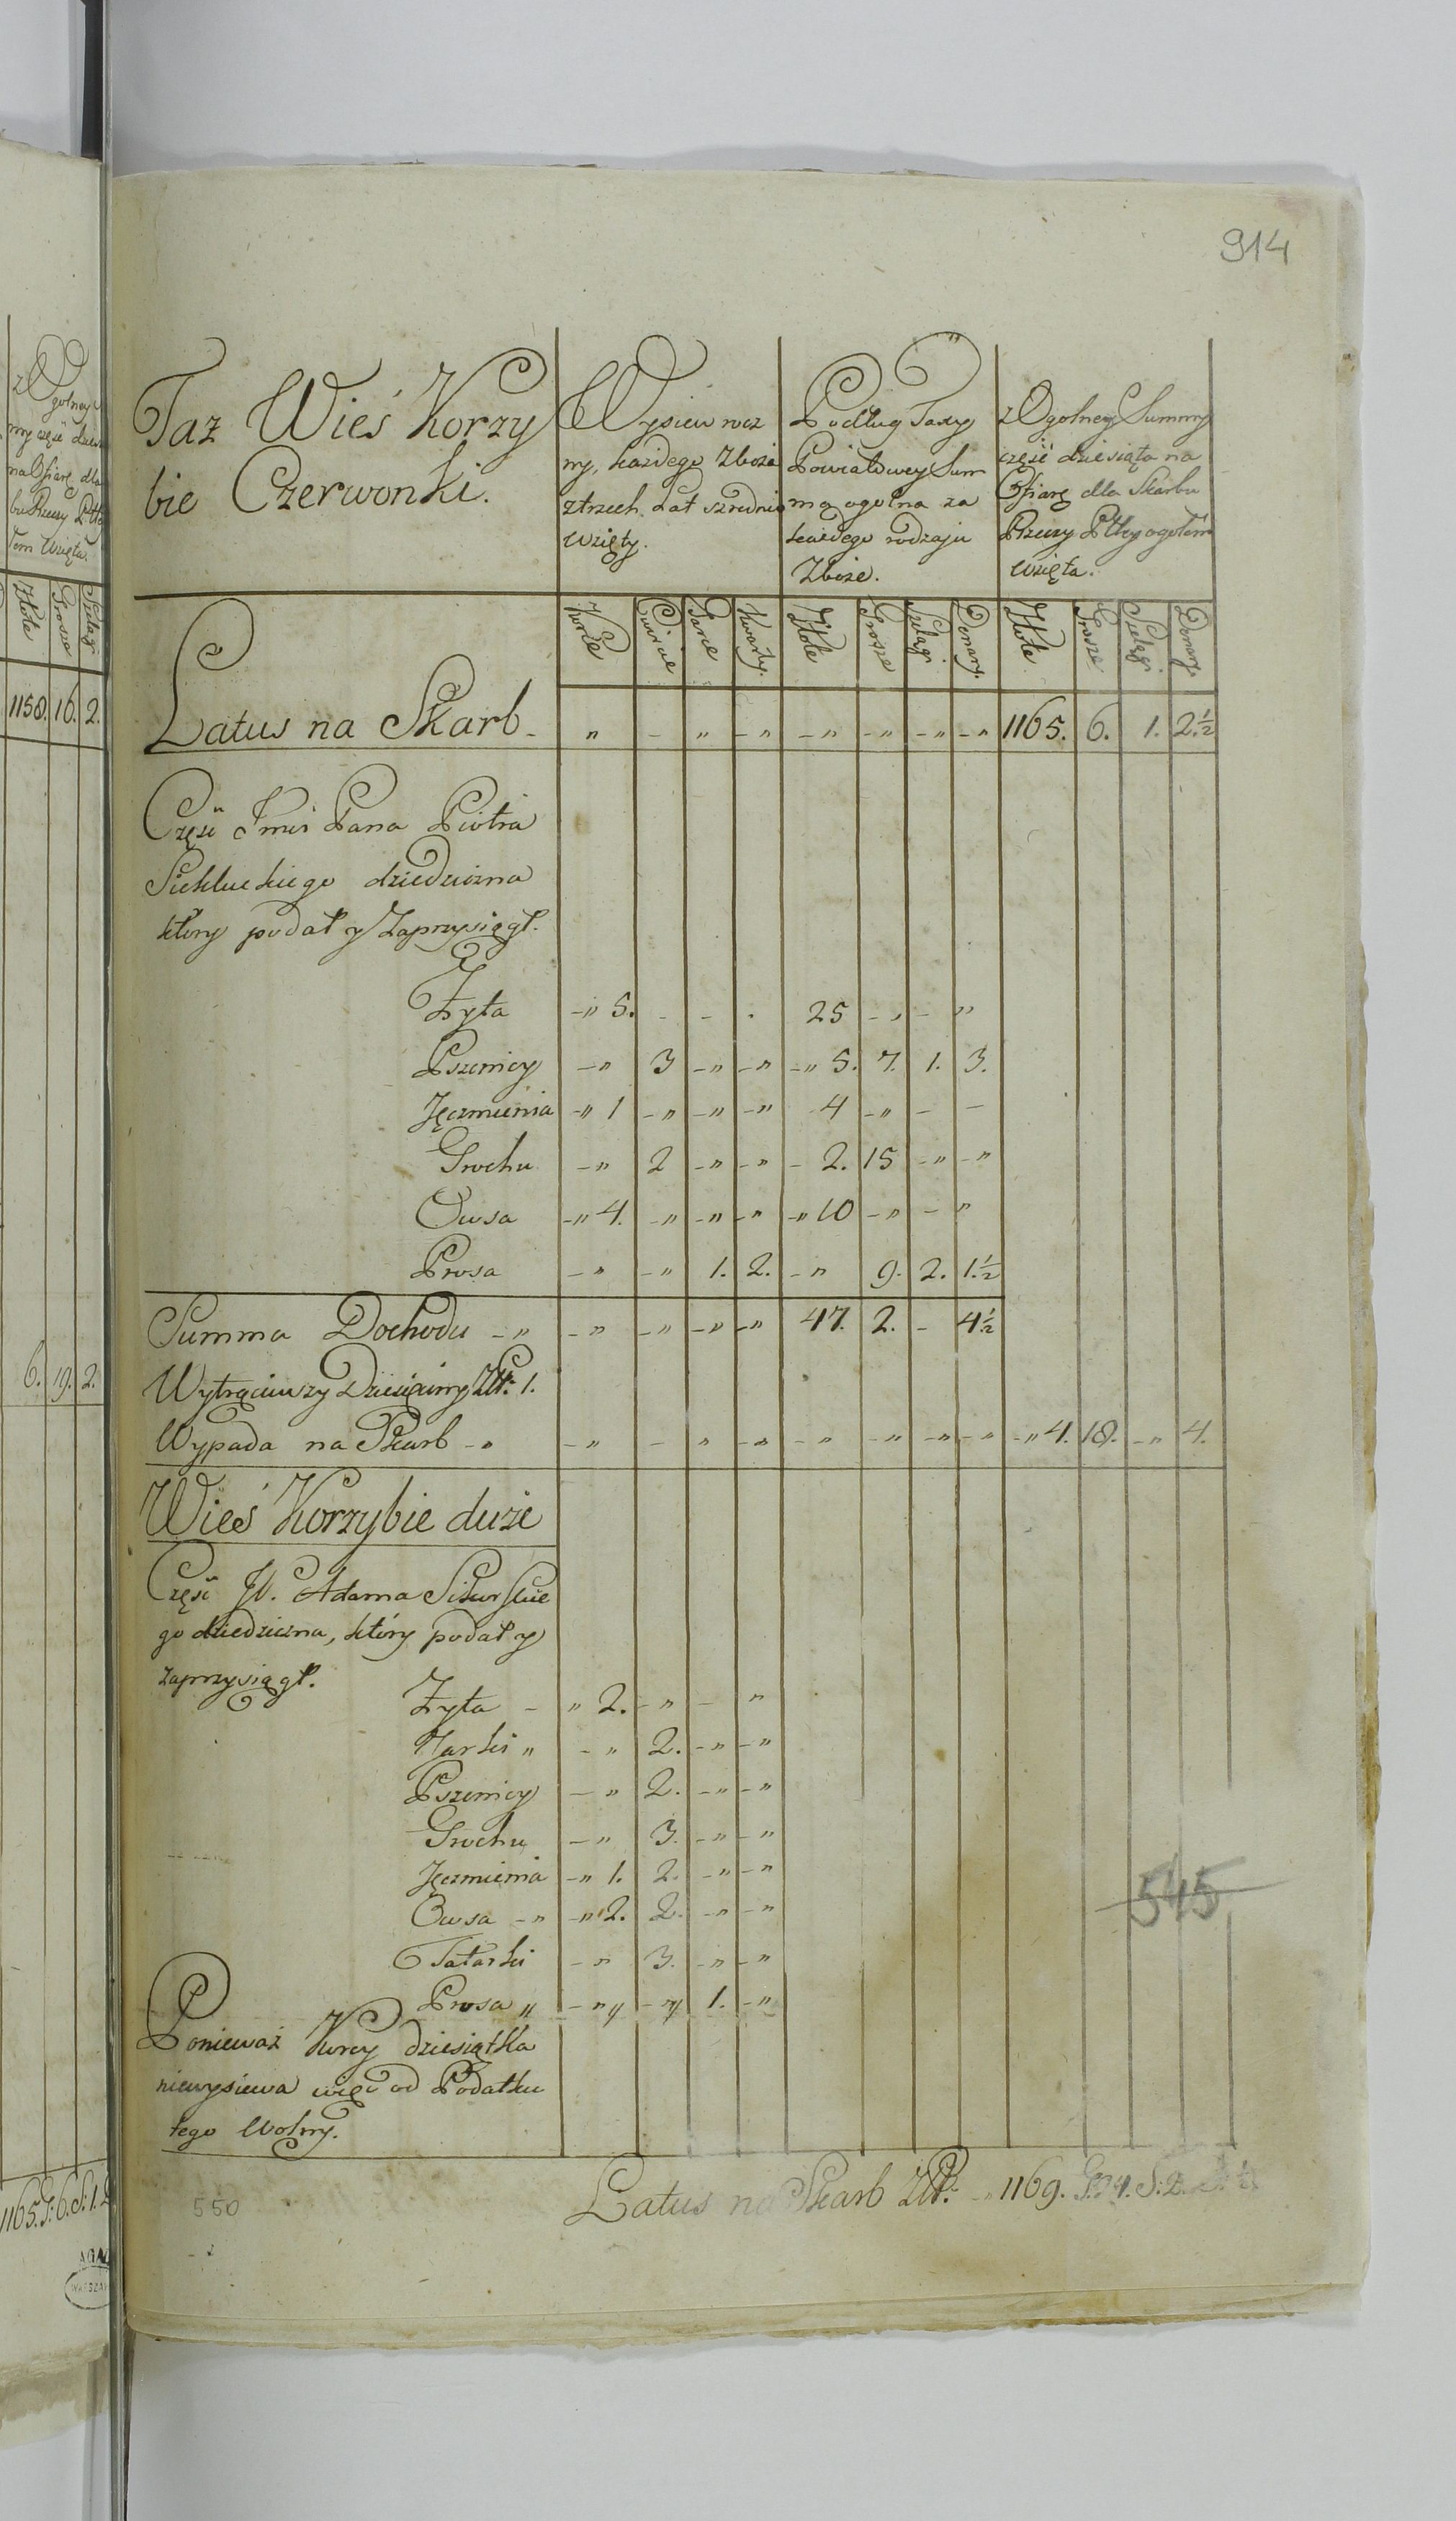 914
Taz Wieś Korzy
bie Czerwonki.
Wysiew rocz
ny, każdego Zboża
ztrzech Lat szrednio
wzięty.
Podług Taxy
Powiatowey Sum
ma ogolna za
każdego rodzaju
Zboże.
z Ogolney Summy
część dziesiąta na
Ofiarę dla Skarbu
Rzeczy Pltey ogołem
wzięta.
Korce Cwirci Garce Kwarty. Złote Grosze Szelągi Denary. Złote Grosze Szelągi Denary.
Latus na Skarb - „ - „ - „ - „ - „ - „ - „ 1165. 6. 1. 2.½
Część Jmci Pana Piotra
Siekluckiego dziedziczna
ktory podał y Zaprzysiągł.
Żyta -„ 5. - - . 25 -„ - „
Pszenicy -„ 3 -„ -„ -„ 5. 7. 1. 3.
Jęczmienia -„ 1 -„ -„ -„ 4 -„ - -
Grochu -„ 2 -„ -„ - 2. 15 -„ -„
Owsa -„ 4. -„ -„ -„ -„ 10 -„ - „
Prosa -„ -„ 1. 2. -„ 9. 2. 1.½
Summa Dochodu -„ -„ -„ -„ -„ 47. 2. - 4½
Wytrąciwszy Dziesięciny Złt: 1.
Wypada na Skarb -„ -„ - „ -„ -„ -„ -„ -„ -„ 4. 18. -„ 4.
Wieś Korzybie duże
Część W. Adama Sikorskie
go dziedziczna, który podał y
zaprzysiągł.
Żyta - „ 2. -„ - „
Jarki „ -„ 2. -„ -„
Pszenicy -„ 2. -„ -„
Grochu -„ 3. -„ -„
Jęczmienia -„ 1. 2. -„ -„
Owsa -„ -„ 2. 2. -„ -„
Tatarki -„ 3. -„ -„
Prosa „ -„ -„ 1. -„
Ponieważ Korcy dziesiątka
niewysiewa więc od Podatku
tego Wolny.
545
Latus na Skarb Złt: -„ 1169.
550
1158. 16. 2.
6. 19. 2.
1165. g: 6. S: 1.
AGAD